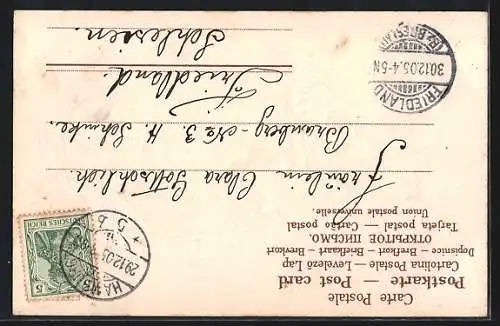 Carte Postale
Postkarte — Post card
Cartolina Postale — Levelező Lap
Dopisnice — Brefkort — Briefkaart — Brevkort
ОТКРЫТОЕ ПИСЬМО.
Tarjeta postal — Cartão postal
Union postale universelle.
Fräulein Clara Gottschlich
No 3. H.
Friedland.
Schlesien.
DEUTSCHES REICH
5
29.12.05
5
FRIEDLAND
30.12.05.4-5N
(BZ. BRESLAU)